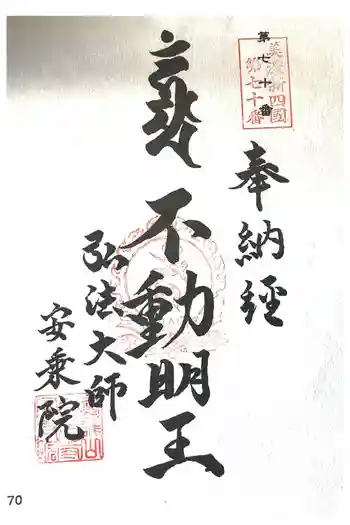 第七十番
美濃新四国
第七十番
奉納経
不動明王
弘法大師
安乗院
70